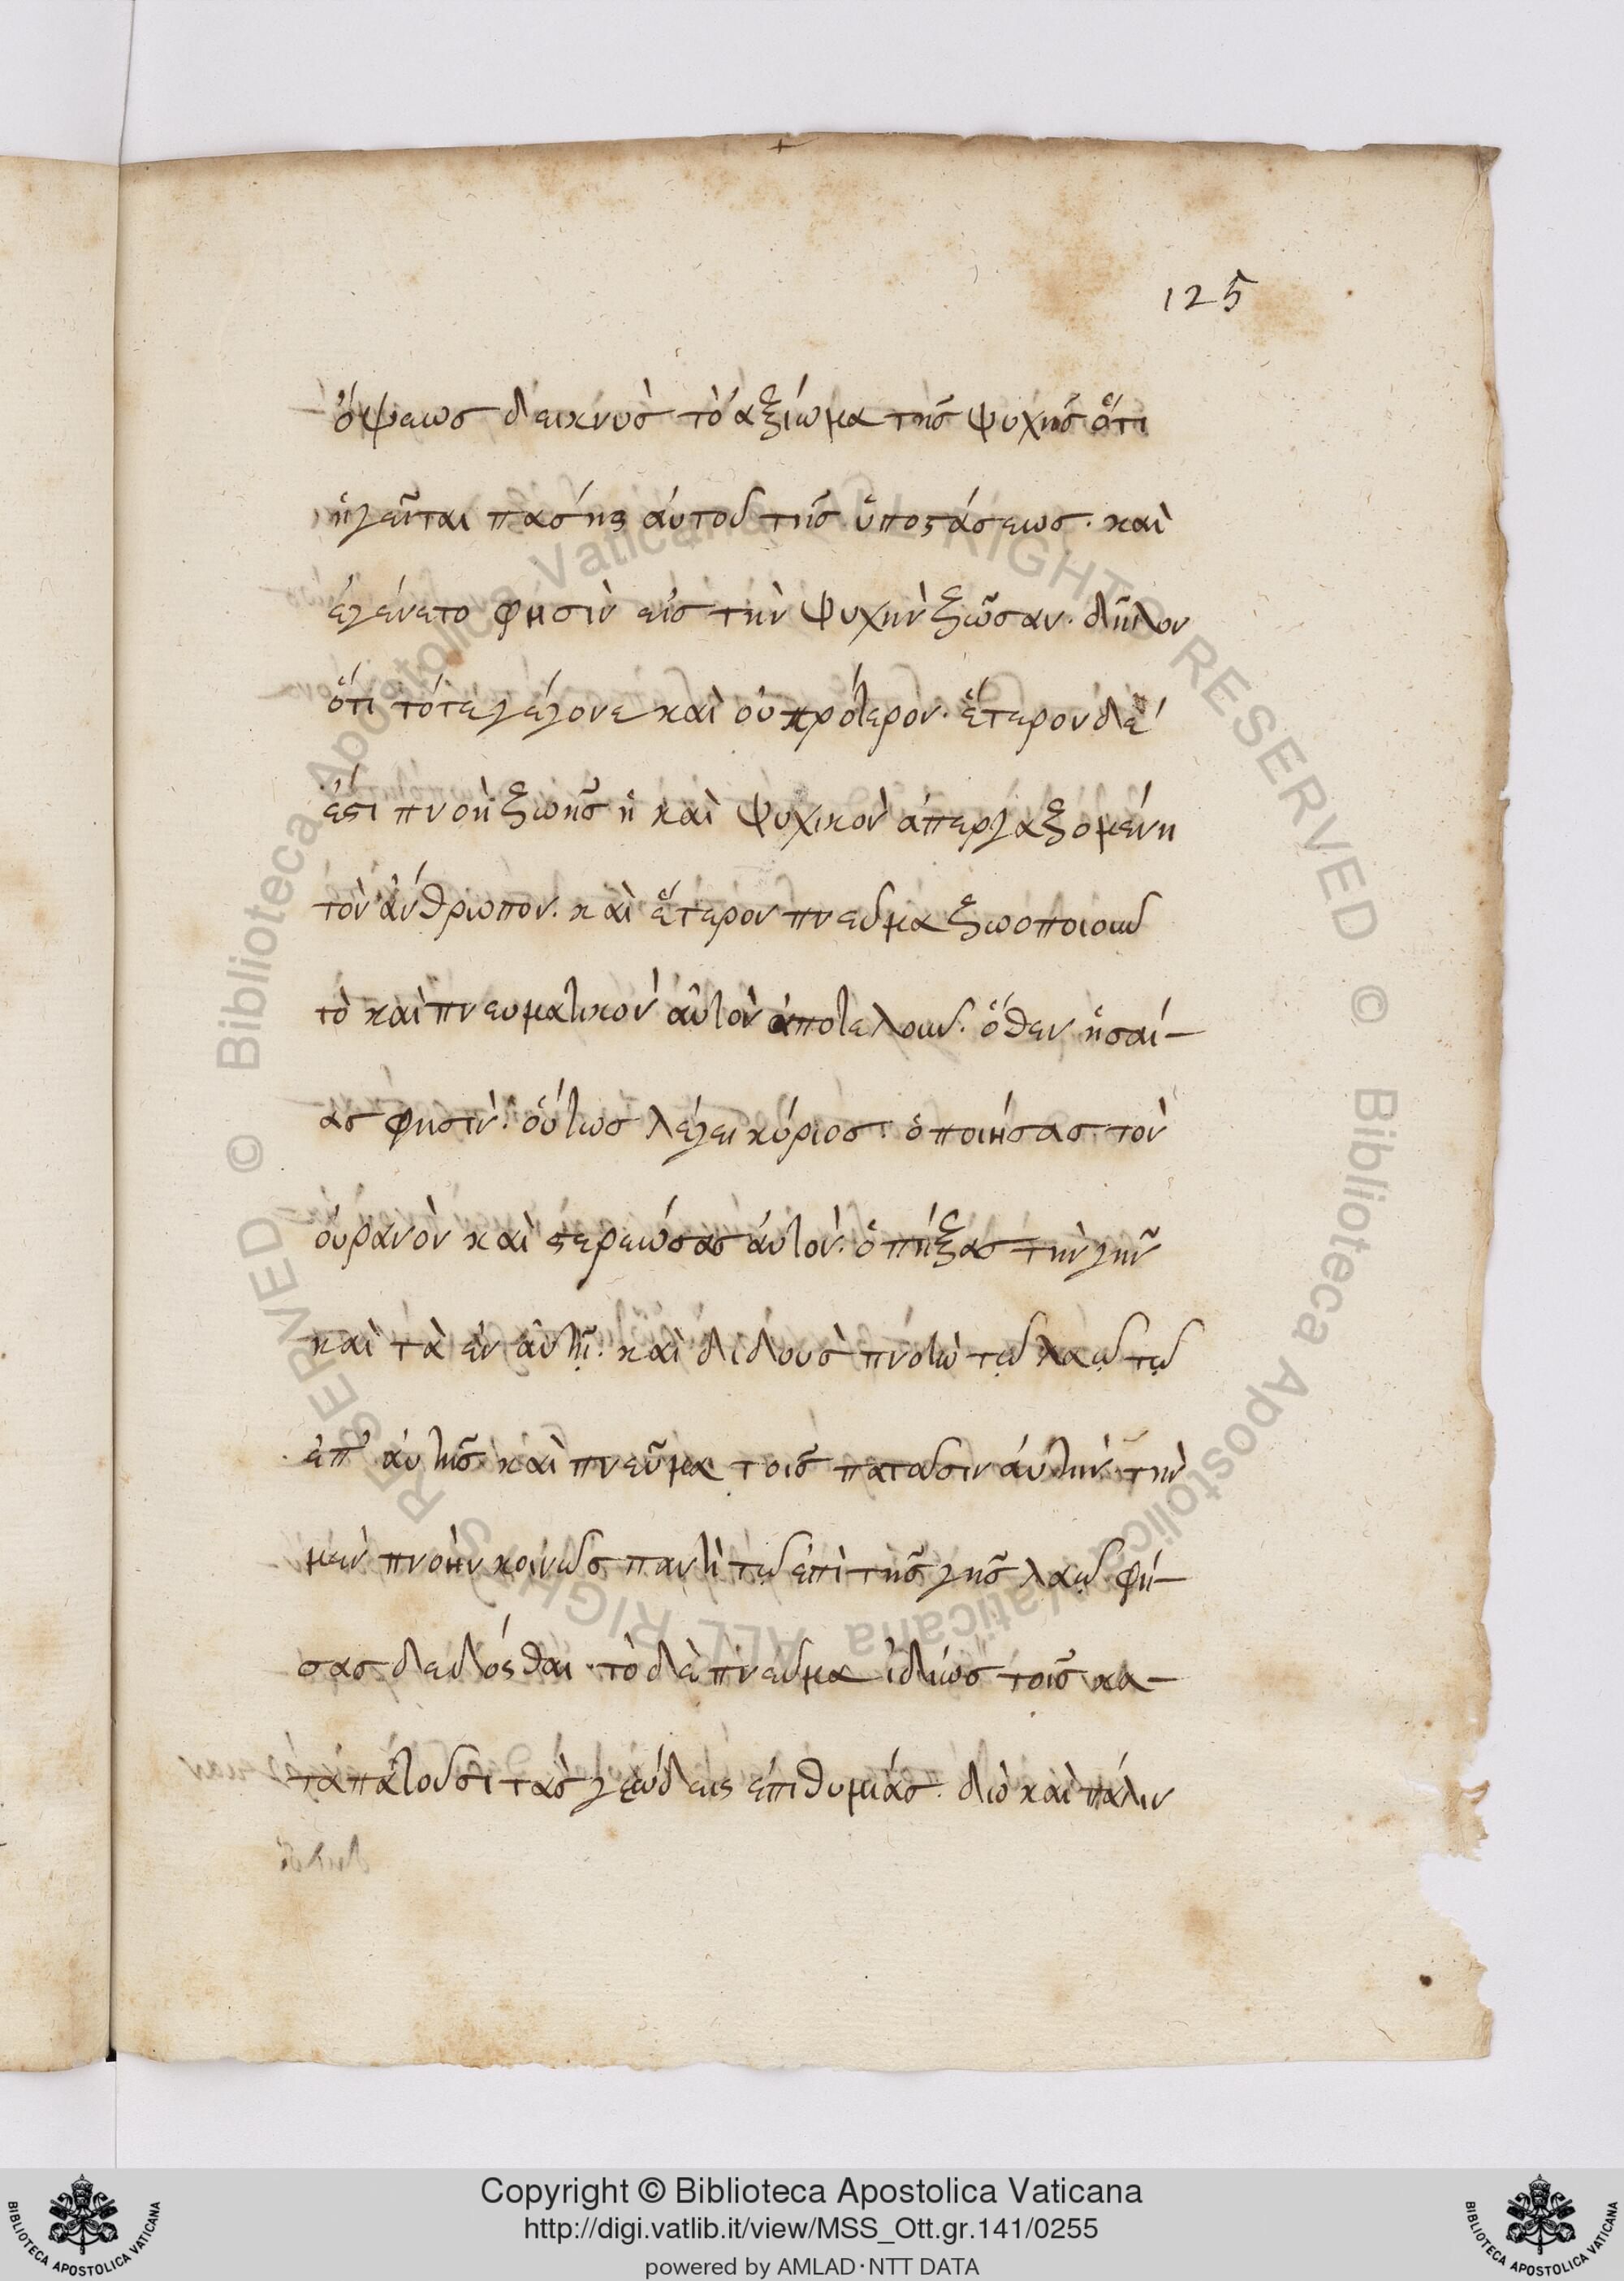 125
ὄψεως δεικνὺς τὸ ἀξίωμα τῆς ψυχῆς ὅτι
ἡγεῖται πάσης αὐτοῦ τῆς ὑποστάσεως. καὶ
ἐγένετο φησὶν εἰς τὴν ψυχὴν ζῶσαν. δῆλον
ὅτι τότε γέγονε καὶ οὐ πρότερον. ἕτερον δέ
ἐστι πνοὴ ζωῆς ἡ καὶ ψυχικὸν ἀπεργαζομένη
τὸν ἄνθρωπον. καὶ ἕτερον πνεῦμα ζωοποιοῦν
τὸ καὶ πνευματικὸν αὐτὸν ἀποτελοῦν. ὅθεν ἡσαί-
ας φησὶν. οὕτως λέγει κύριος. ὁ ποιήσας τὸν
οὐρανὸν καὶ στερεώσας αὐτόν. ὁ πήξας τὴν γῆν
καὶ τὰ ἐν αὐτῇ. καὶ διδοὺς πνοὴν τῷ λαῷ τῷ
ἐπ' αὐτῆς. καὶ πνεῦμα τοῖς πατοῦσιν αὐτὴν. τὴν
μὲν πνοὴν κοινῶς παντὶ τῷ ἐπὶ τῆς γῆς λαῷ φή-
σας δεδόσθαι. τὸ δὲ πνεῦμα ἰδίως τοῖς κα-
ταπατοῦσι τὰς γεώδεις ἐπιθυμίας. διὸ καὶ πάλιν
Copyright © Biblioteca Apostolica Vaticana
http://digi.vatlib.it/view/MSS_Ott.gr.141/0255
powered by AMLAD·NTT DATA
BIBLIOTECA APOSTOLICA VATICANA
BIBLIOTECA APOSTOLICA VATICANA
© Biblioteca Apostolica Vaticana ALL RIGHTS RESERVED © Biblioteca Apostolica Vaticana ALL RIGHTS RESERVED